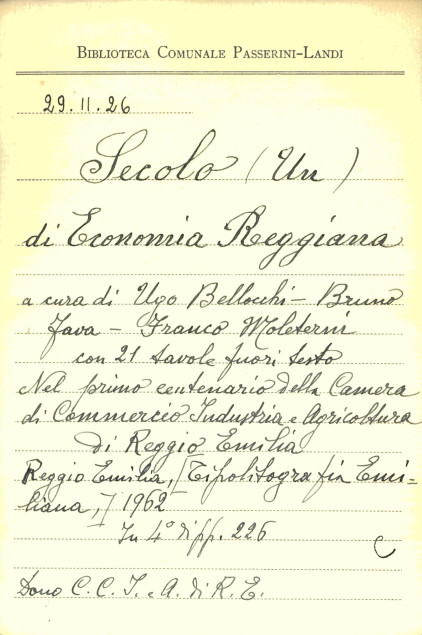 BIBLIOTECA COMUNALE PASSERINI-LANDI
29.11.26
Secolo (Un)
di Economia Reggiana
a cura di Ugo Bellocchi - Bruno
Fava - Franco Moleterni
con 21 tavole fuori testo
Nel primo centenario della Camera
di Commercio Industria e Agricoltura
di Reggio Emilia
Reggio Emilia, [Tipolitografia Emi=
liana,] 1962
In 4° di pp. 226
Dono C. C. I. e A. di R. E.